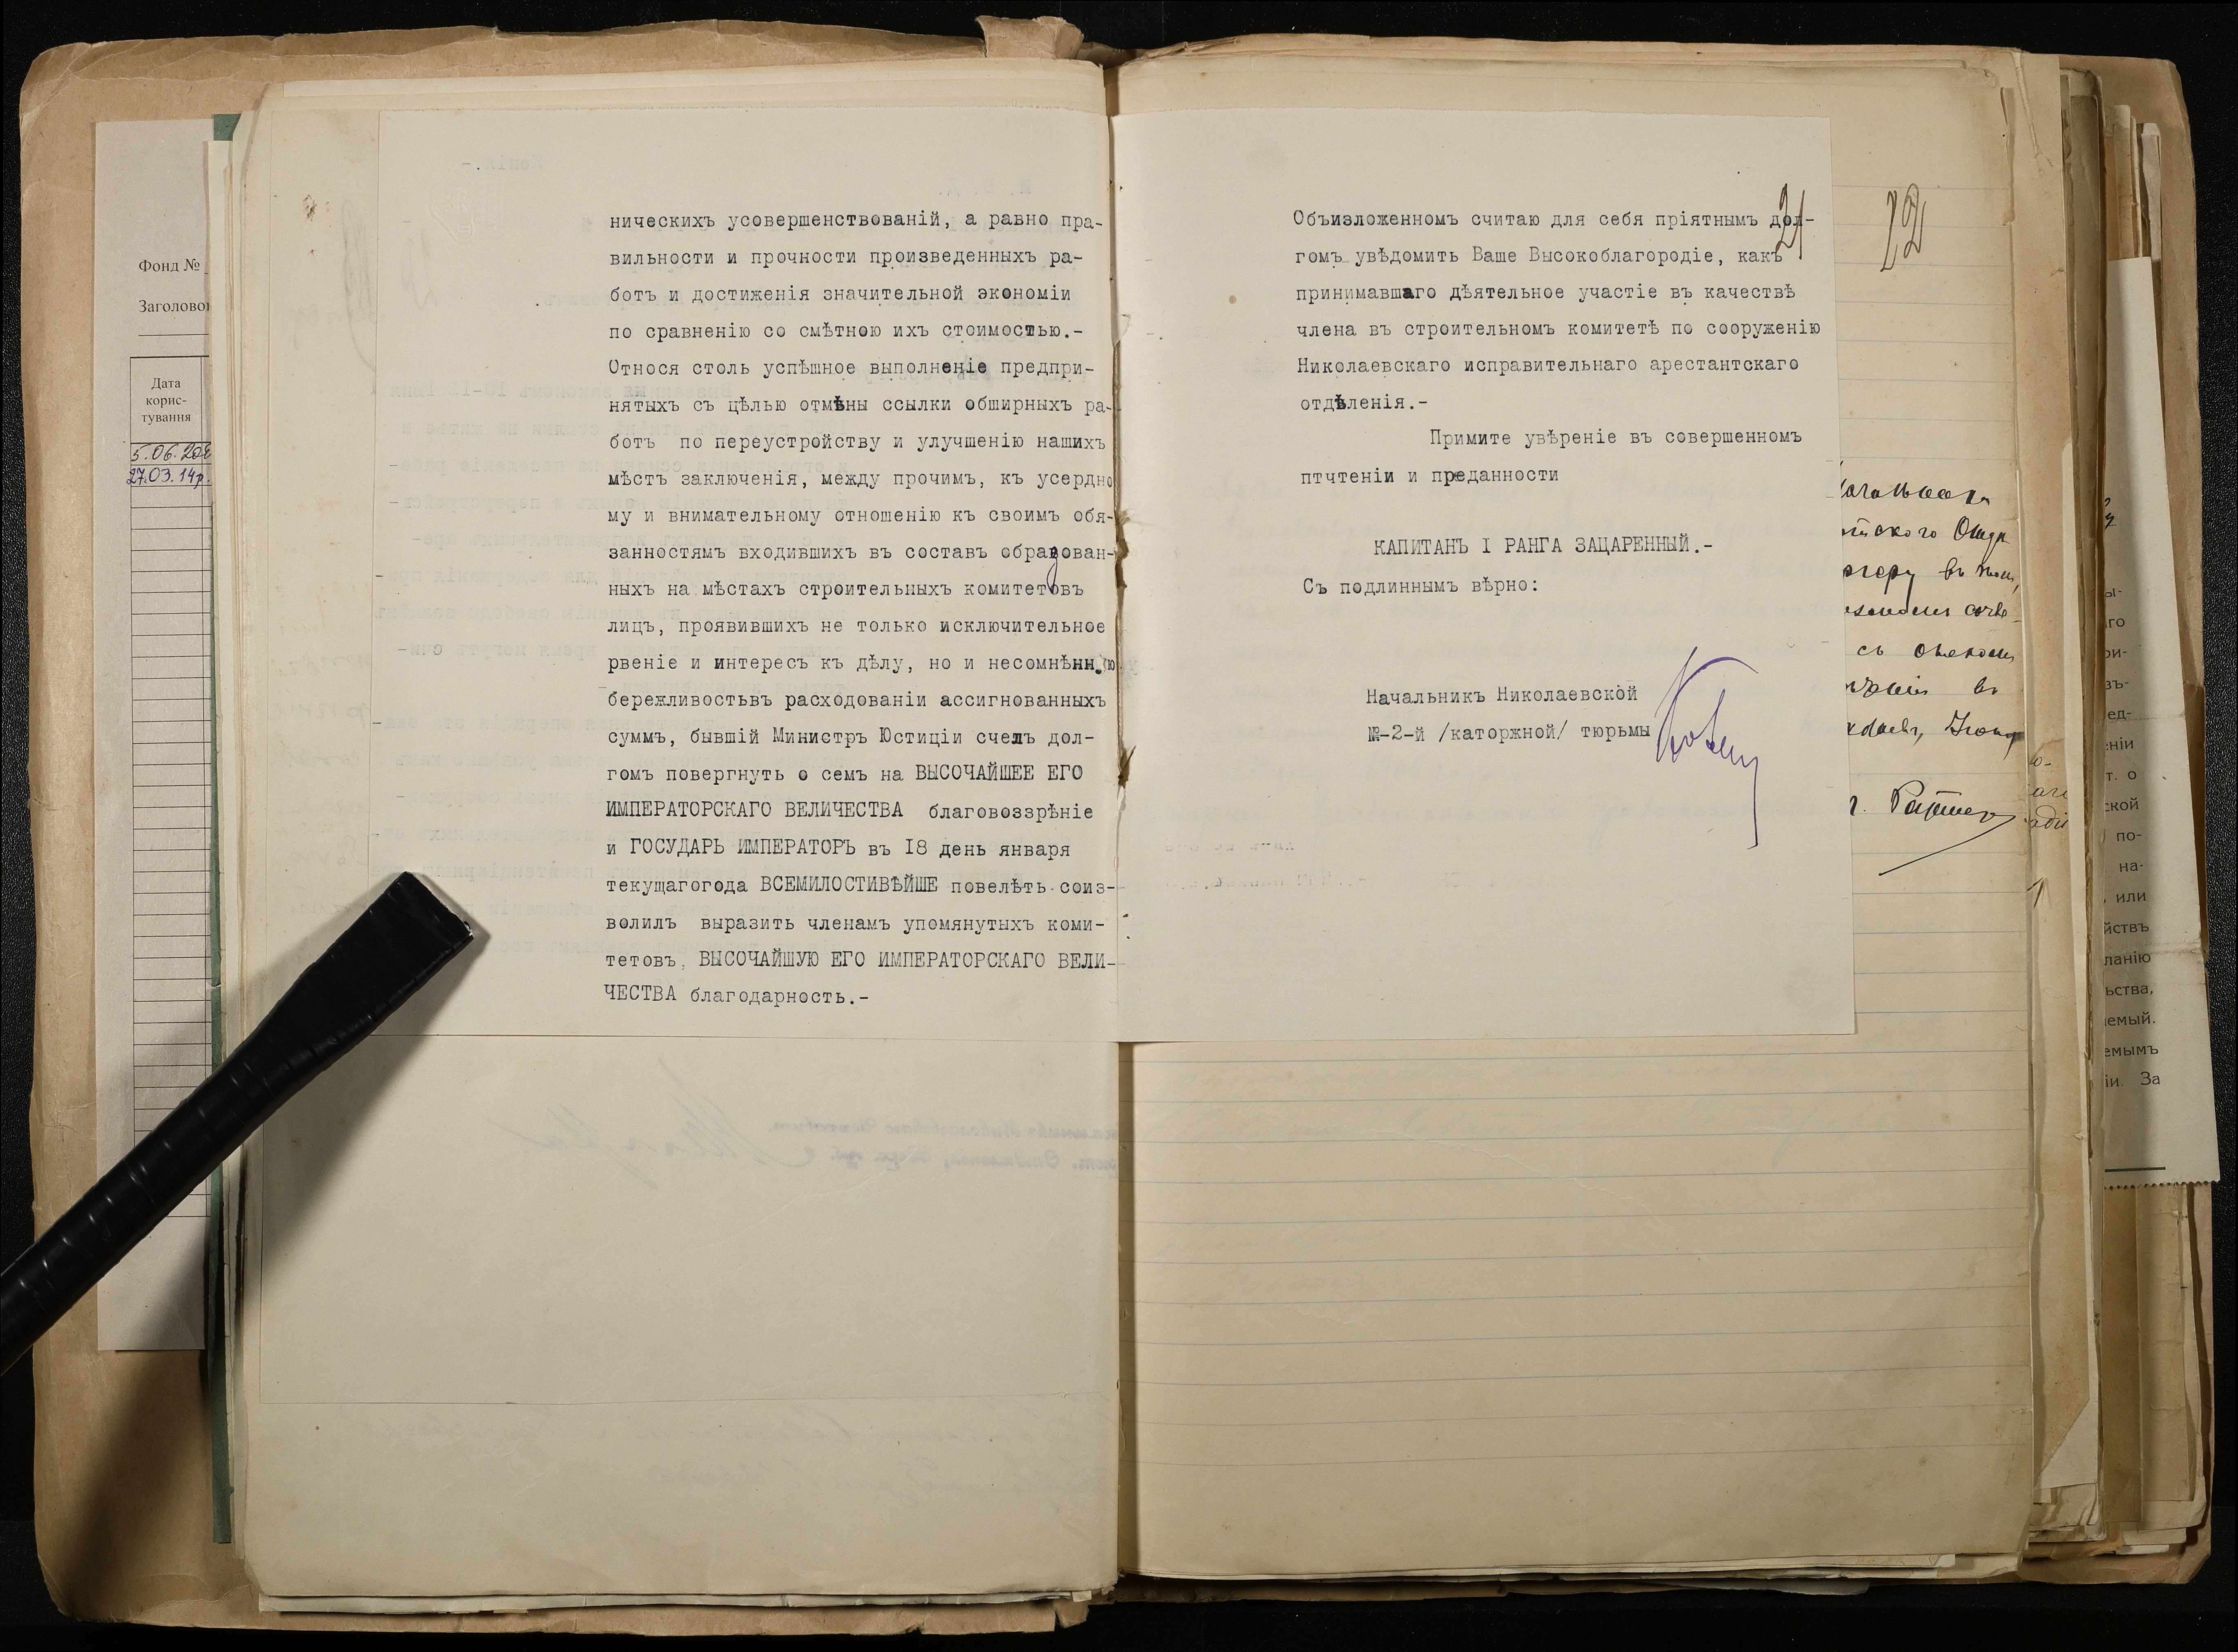 Фонд №
Заголово
Дата
корис-
тування
5.06.20
27.03.14р.
ническихъ усовершенствованій, а равно пра-
вильности и прочности произведенныхъ ра-
ботъ и достиженія значительной экономіи
по сравненію со смѣтною ихъ стоимостью.-
Относя столь успѣшное выполненіе предпри-
нятыхъ съ цѣлью отмѣны ссылки обширныхъ ра-
ботъ по переустройству и улучшенію нашихъ
мѣстъ заключенія, между прочимъ, къ усердно
му и внимательному отношенію къ своимъ обя-
занностямъ входившихъ въ составъ образован-
ныхъ на мѣстахъ строительныхъ комитетовъ
лицъ, проявившихъ не только исключительное
рвеніе и интересъ къ дѣлу, но и несомнѣнную
бережливостьвъ расходованіи ассигнованныхъ
суммъ, бывшій Министръ Юстиціи счелъ дол-
гомъ повергнуть о семъ на ВЫСОЧАЙШЕЕ ЕГО
ИМПЕРАТОРСКАГО ВЕЛИЧЕСТВА благовоззрѣніе
и ГОСУДАРЬ ИМПЕРАТОРЪ въ I8 день января
текущагогода ВСЕМИЛОСТИВѢЙШЕ повелѣть соиз-
волилъ выразить членамъ упомянутыхъ коми-
тетовъ, ВЫСОЧАЙШУЮ ЕГО ИМПЕРАТОРСКАГО ВЕЛИ-
ЧЕСТВА благодарность.-
21
Объизложенномъ считаю для себя пріятнымъ дол-
гомъ увѣдомить Ваше Высокоблагородіе, какъ
принимавшаго дѣятельное участіе въ качествѣ
члена въ строительномъ комитетѣ по сооруженію
Николаевскаго исправительнаго арестантскаго
отдѣленія.-
Примите увѣреніе въ совершенномъ
птчтеніи и преданности
КАПИТАНЪ I РАНГА ЗАЦАРЕННЫЙ.-
Съ подлиннымъ вѣрно:
Начальникъ Николаевской
№-2-й /каторжной/ тюрьмы
22
съ
въ
ы-
го
ри-
зъ-
ед-
еніи
т. о
ской
по-
на-
или
йствъ
ланію
ьства,
емый.
емымъ
іи. За